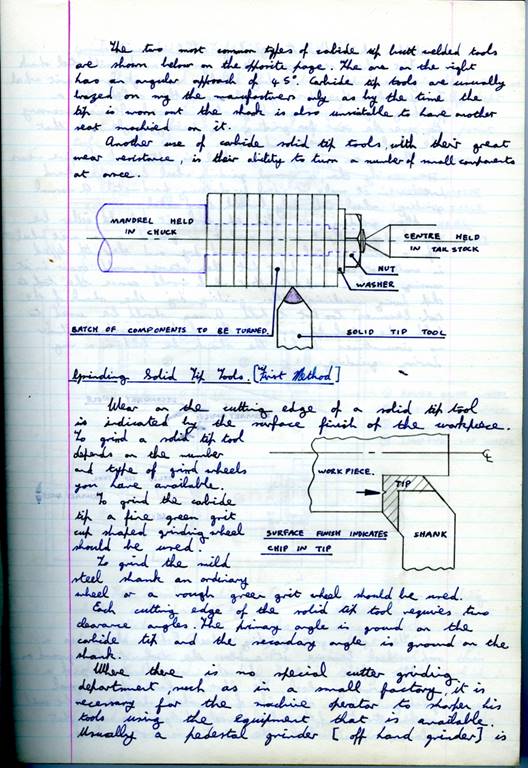 The two most common types of cabide tip butt welded tools
are shown below on the opposite page. The one on the right
has an angular approach of 45°. Carbide tip tools are usually
brazed on by the manufacturers only as by the time the
tip is worn out the shank is also unsuitable to have another
seat machied on it.
Another use of cabide solid tip tools, with their great
wear resistance, is their ability to turn a number of small components
at once.
MANDREL HELD
IN CHUCK
CENTRE HELD
IN TAILSTOCK
NUT
WASHER
BATCH OF COMPONENTS TO BE TURNED.
SOLID TIP TOOL
Grinding Solid Tip Tools. [First Method]
Wear on the cutting edge of a solid tip tool
is indicated by the surface finish of the workpiece.
To grind a solid tip tool
depends on the number
and type of grind wheels
you have available.
To grind the cabide
tip a fine green grit
cup shaped grinding wheel
should be used.
WORKPIECE.
TIP
SURFACE FINISH INDICATES
CHIP IN TIP
SHANK
To grind the mild
steel shank an ordinary
wheel or a rough green grit wheel should be used.
Each cutting edge of the solid tip tool requires two
clearance angles. The primary angle is ground on the
carbide tip and the secondary angle is ground on the
shank.
Where there is no special cutter grinding
department, such as in a small factory, it is
necessary for the machine operator to sharpen his
tools using the equipment that is available.
Usually a pedestal grinder [off hand grinder] is